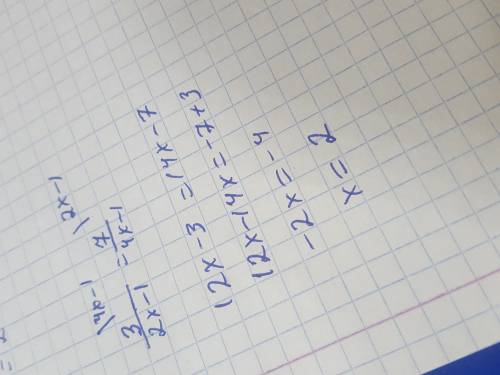 3 \4x-1 / 2x-1 = 7 \2x-1 / 4x-1
12x-3 = 14x-7
12x-14x = -7+3
-2x = -4
x = 2